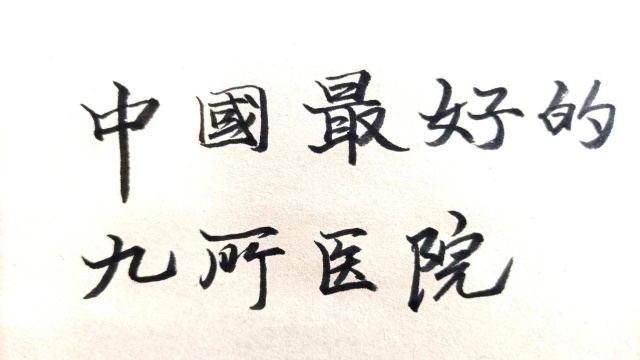 中國最好的
九所医院